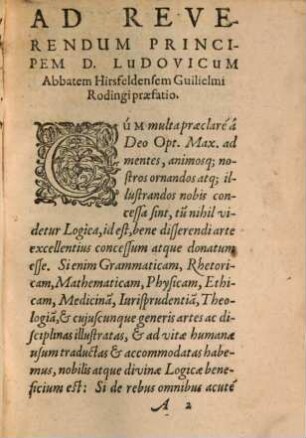 AD REVE-
RENDUM PRINCI-
PEM D. LuDOVICuM
Abbatem Hirsfeldensem Guilielmi
Rodingi præfatio.
CÚM multa præclaré á
Deo Opt. Max. ad
mentes, animosq; no-
stros ornandos atq; il-
lustrandos nobis con-
cessa sint, tũ nihil vi-
detur Logica, id est, bene disserendi arte
excellentius concessum atque donatum
esse. Si enim Grammaticam, Rhetor-
icam, Mathematicam, Physicam, Ethi-
cam, Medicinã, Iurisprudentiã, Theo-
logiã, & cujuscunque generis artes ac di-
sciplinas illustratas, & ad vitæ humanæ
usum traductas & accommodatas habe-
mus, nobilis atque divinæ Logicæ bene-
ficium est: Si de rebus omnibus acuté
A 2